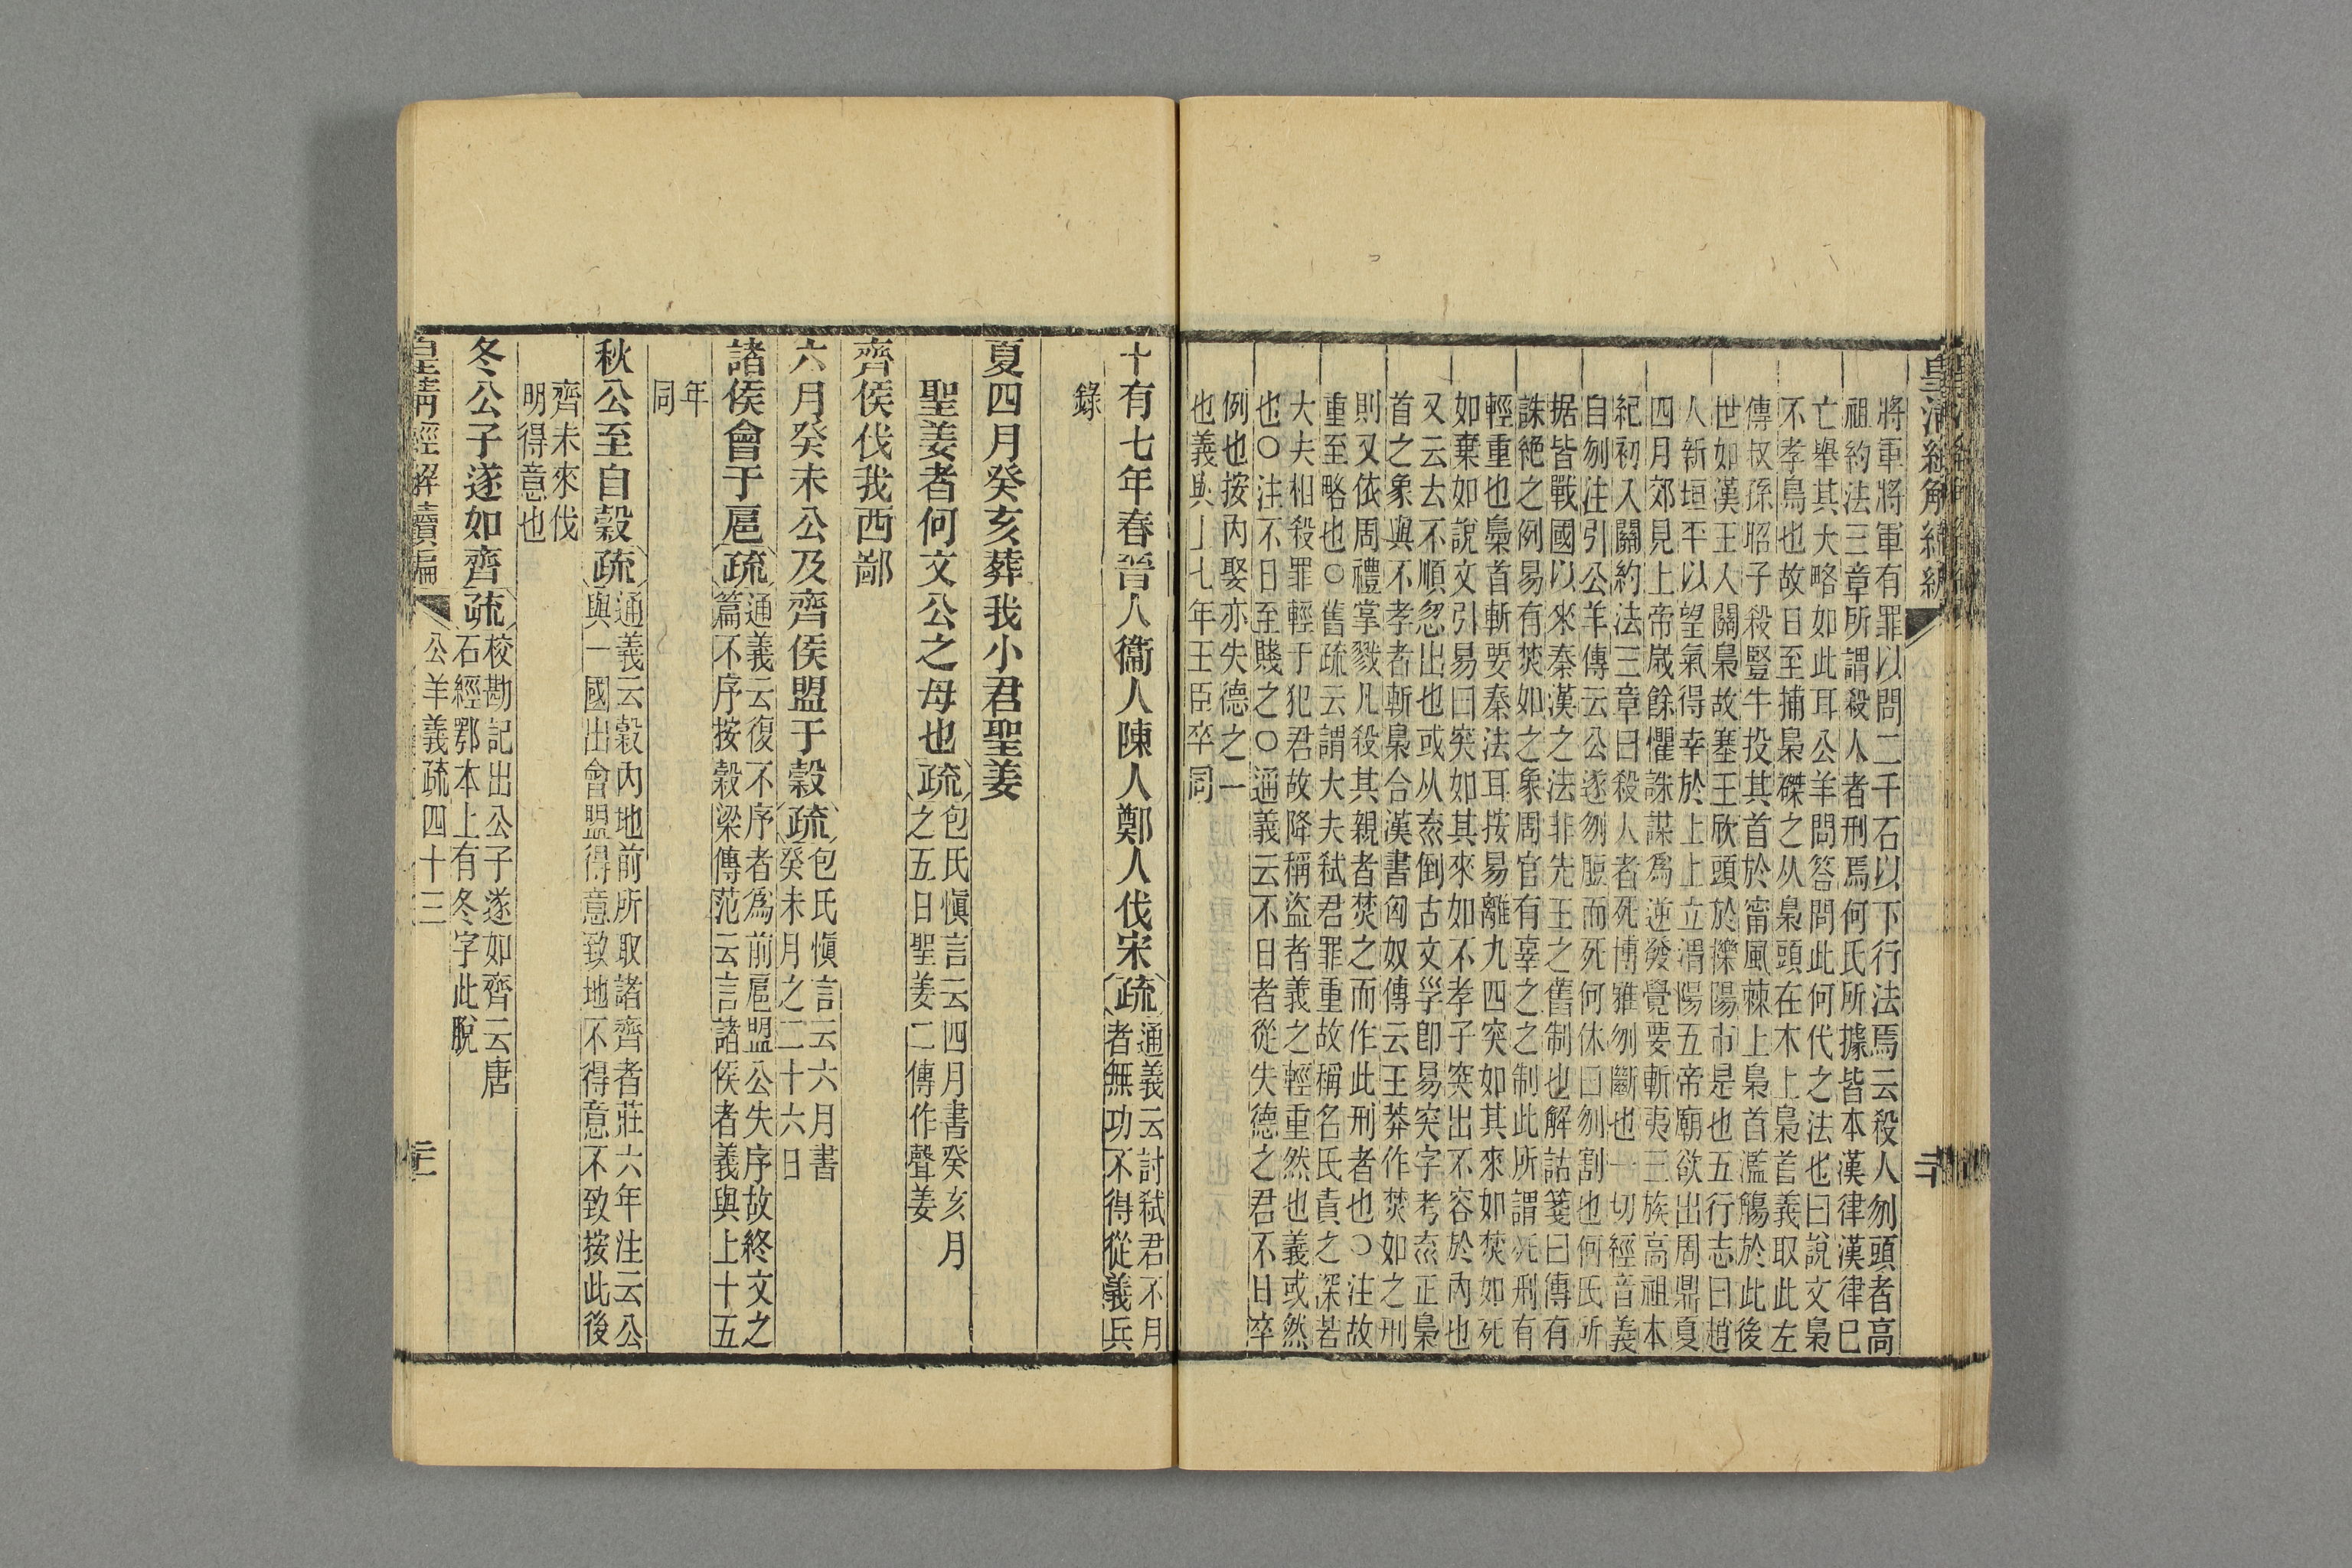 皇清經解續編
將軍將軍有罪以問二千石以下行法焉云殺人刎頭者高
祖約法三章所謂殺人者刑焉何氏所據皆本漢律漢律已
亡舉其大略如此耳公羊問答問此何代之法也曰說文梟
不孝鳥也故日至捕梟磔之从梟頭在木上梟首義取此左
傳叔孫昭子殺豎牛投其首於甯風棘上梟首濫觴於此後
世如漢王入關梟故塞王欣頭於櫟陽市是也五行志曰趙
人新垣平以望氣得幸於上上立渭陽五帝廟欲出周鼎夏
四月郊見上帝歲餘懼誅謀為逆發覺要斬夷三族高祖本
紀初入關約法三章曰殺人者死博雅刎斷也一切經音義
自刎注引公羊傳云公遂刎脰而死何休曰刎割也何氏所
据皆戰國以來秦漢之法非先王之舊制也解詁箋曰傳有
誅絕之例易有焚如之象周官有辜之之制此所謂死刑有
輕重也梟首斬要秦法耳按易離九四突如其來如焚如死
如棄如說文引易曰突如其來如不孝子突出不容於內也
又云𠫓不順忽出也或从𠫓倒古文孚卽易突字考𠫓正梟
首之象與不孝者斬梟合漢書匈奴傳云王莽作焚如之刑
則又依周禮掌戮凡殺其親者焚之而作此刑者也〇注故
重至略也〇舊疏云謂大夫弒君罪重故稱名氏責之深若
大夫相殺罪輕于犯君故降稱盜者義之輕重然也義或然
也〇注不日至賤之〇通義云不日者從失德之君不日卒
例也按內娶亦失德之一
也義與上七年王臣卒同
十有七年春晉人衞人陳人鄭人伐宋疏通義云討弒君不月
者無功不得從義兵
錄
夏四月癸亥葬我小君聖姜
聖姜者何文公之母也疏包氏愼言云四月書癸亥月
之五日聖姜二傳作聲姜
齊侯伐我西鄙
六月癸未公及齊侯盟于穀疏包氏愼言云六月書
癸未月之二十六日
諸侯會于扈疏通義云復不序者為前扈盟公失序故終文之
篇不序按穀梁傳范云言諸侯者義與上十五
年
同
秋公至自穀疏通義云穀內地前所取諸齊者莊六年注云公
與一國出會盟得意致地不得意不致按此後
齊未來伐
明得意也
冬公子遂如齊疏校勘記出公子遂如齊云唐
石經鄂本上有冬字此脫
皇清經解續編
公羊義疏四十三